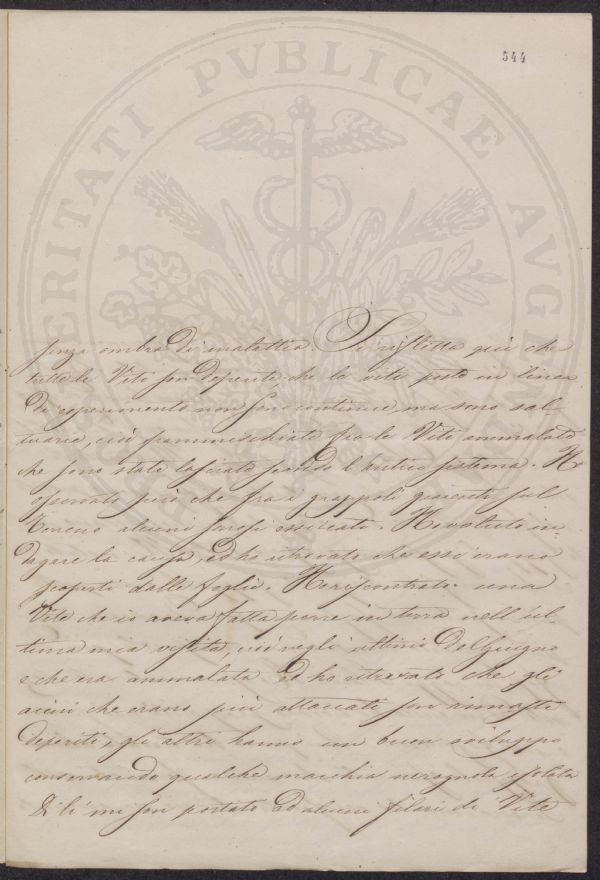 544
VERITATI PVBLICAE AVGE
senza ombra di malattia. Si rifletta quì che
tutte le Viti son deperite che le viti poste in linea
di esperimento non sono continue ma sono sal
tuarie, cioè frammischiate fra le Viti ammalate
che sono state lasciate secondo l'antico sistema. Ho
osservato però che fra i grappoli giacenti sul
terreno alcuni sonosi essiccati. Ho voluto in
dagare la causa, ed ho ritrovato che essi erano
scoperti dalle foglie. Ho riscontrato una
Vite che io aveva fatta porre in terra nell'ul
tima mia visita, cioè negli ultimi del Giugno
e che era ammalata ed ho ritrovato che gli
acini che erano più attaccati son rimasti
deperiti, gli altri hanno un buon sviluppo
conservando qualche macchia nerognola isolata
Di lì mi son portato ad alcuni filari di Vite